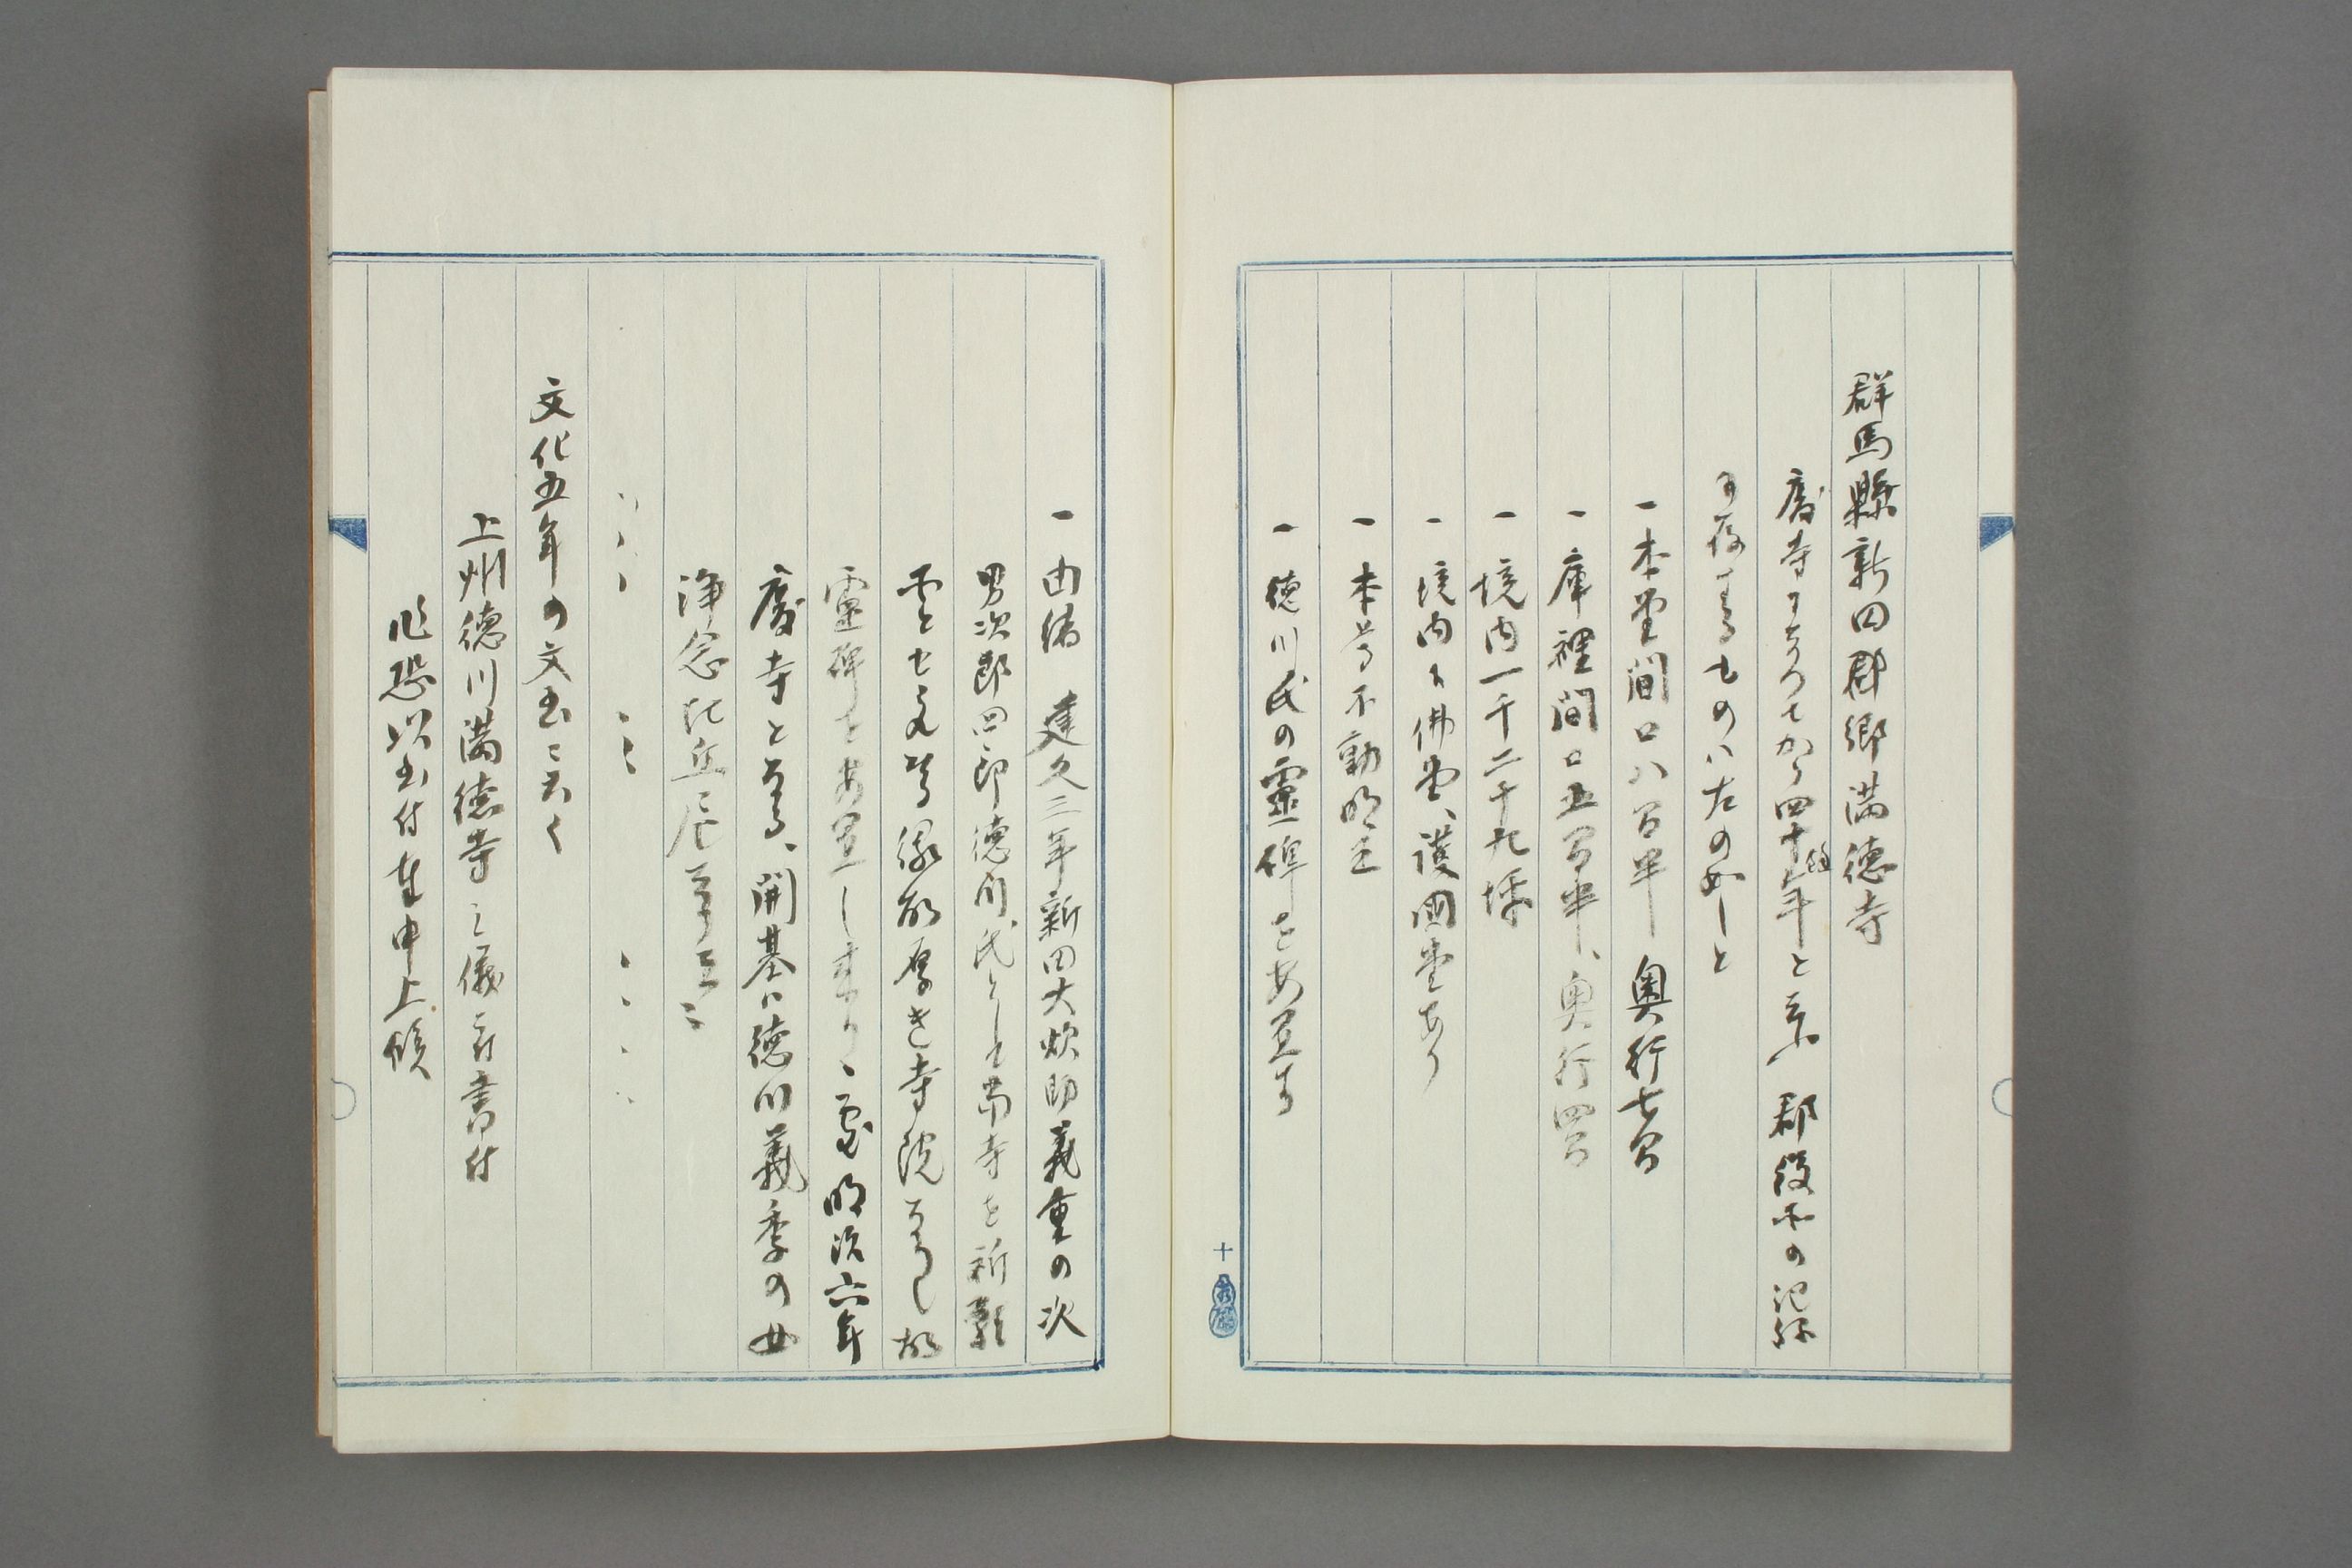 群馬縣新田郡郷満徳寺
廃寺になつてから四十余年と云ふ 郡役所の記録
に存するものハ左の如しと
一本堂間口八間半 奥行七間
一庫裡間口五間半、奥行四間
一境内一千二十九坪
一境内ニ佛堂、護國堂あり
一本尊不動明王
一徳川氏の靈碑を安置す
一由緒 建久三年新田大炊助義重の次
男次郎四郎徳川氏として当寺を祈願
寺とせる 縁故厚き寺院なりし故
靈碑を安置し来り、 明治六年
廃寺となる、開基ハ徳川義季の女
浄念比丘尼なり云々
文化五年の文書に云く
上州徳川満徳寺之儀ニ付書付
乍恐以書付奉申上候
十